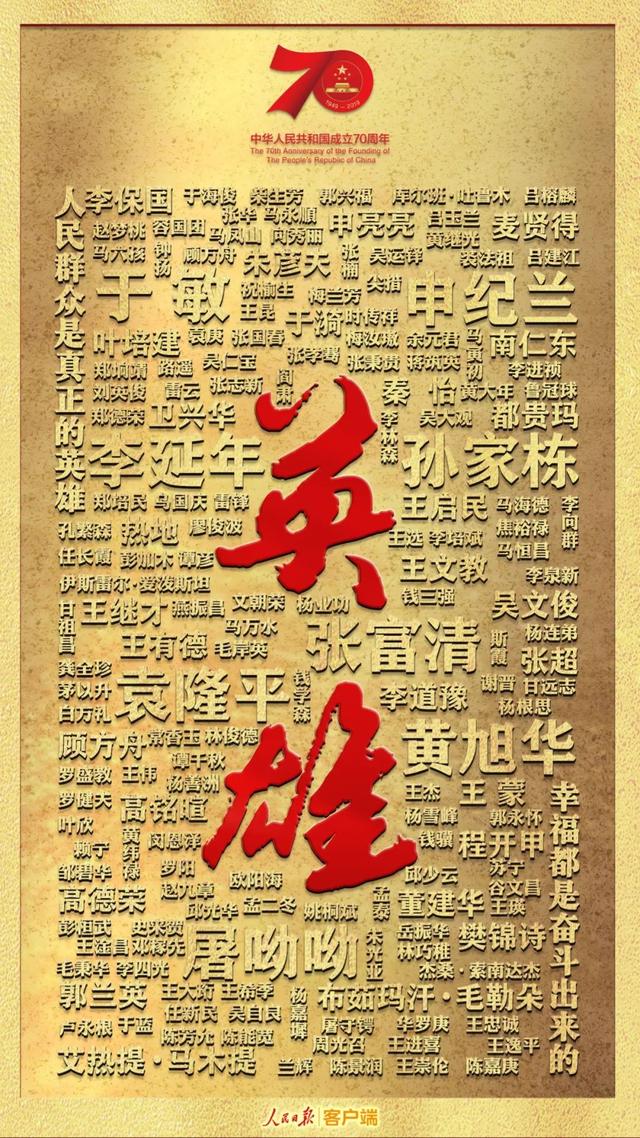 70
1949-2019
中华人民共和国成立70周年
The 70th Anniversary of the Founding of
The People's Republic of China
人民群众是真正的英雄
李保国 于海俊 柴生芳 郭兴福 库尔班·吐鲁木 吕榕麟
赵梦桃 容国团 张华 马永顺 申亮亮 吕玉兰 麦贤得
马六孩 钟扬 顾方舟 马凤山 向秀丽 张楠 吴运铎 黄继光 裘法祖 吕建江
朱彦夫 尖措
于敏 祝榆生 梅兰芳 申纪兰
王昆 于漪 时传祥
叶培建 袁庚 张国春 梅汝璈 余元君 马寅初 南仁东
郑垧靖 路遥 吴仁宝 张学骞 张秉贵 蒋筑英 李进祯
刘英俊 雷云 张志新 阎肃 秦怡 黄大年 鲁冠球
郑德荣 卫兴华 李林森 吴大观 都贵玛
李延年 孙家栋
郑培民 马国庆 雷锋 王启民 马海德 李向群
孔繁森 热地 廖俊波 王选 李培斌 焦裕禄
任长霞 彭加木 谭彦 王文教 马恒昌
伊斯雷尔·爱泼斯坦 钱三强 李泉新
甘祖昌 王继才 燕振昌 文朝荣 杨业功 吴文俊
王有德 马万水 毛岸英 张富清 斯霞 杨连弟
张超
龚全珍 袁隆平 钱学森 李道豫 谢晋 甘远志
茅以升 杨根思
白方礼
顾方舟 常香玉 林俊德 黄旭华
罗盛教 王伟 谭千秋
杨善洲 王杰 王蒙
罗健夫 高铭暄 杨雪峰 郭永怀
叶欣 黄纬禄 闵恩泽 钱骥 程开甲
赖宁 罗阳 苏宁
邹碧华 欧阳海 邱少云 谷文昌
高德荣 赵九章 孟泰 董建华 王瑛
邱光华 孟二冬 姚桐斌
彭恒武 史来贺 岳振华 樊锦诗
王淦昌 邓稼先 屠呦呦 朱光亚 林巧稚
毛秉华 李四光 杰桑·索南达杰
郭兰英 王大珩 王希季 杨嘉墀 布茹玛汗·毛勒朵
任新民 吴自良 屠守锷 华罗庚 王忠诚
卢永根 于蓝 陈芳允 陈能宽 周光召 王进喜 王逸平
艾热提·马木提 兰辉 陈景润 王崇伦 陈嘉庚
英雄
幸福都是奋斗出来的
人民日报 客户端